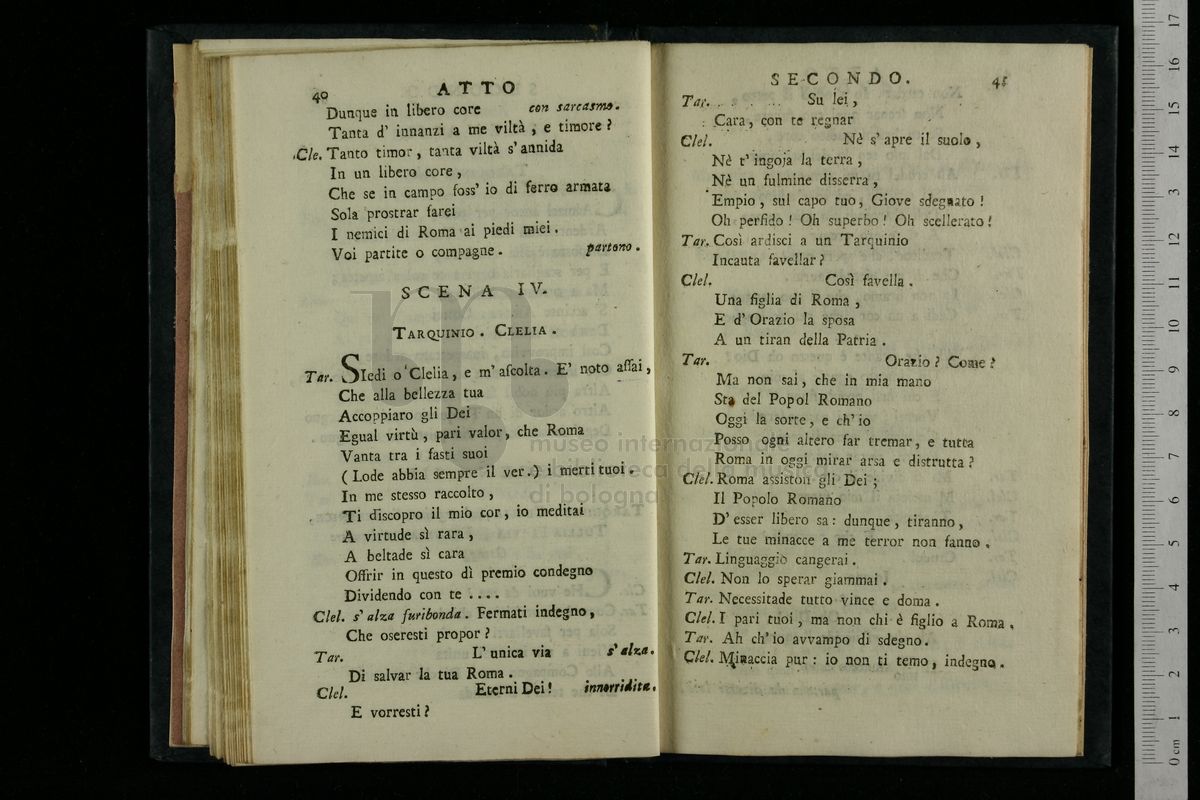 40 ATTO
Dunque in libero core con sarcasmo.
Tanta d' innanzi a me viltà, e timore?
Cle. Tanto timor, tanta viltà s' annida
In un libero core,
Che se in campo foss' io di ferro armata
Sola prostrar farei
I nemici di Roma ai piedi miei.
Voi partite o compagne. partono.
SCENA IV.
TARQUINIO. CLELIA.
Tar. SIedi o Clelia, e m' aſcolta. E' noto aſſai,
Che alla bellezza tua
Accoppiaro gli Dei
Egual virtù, pari valor, che Roma
Vanta tra i fasti suoi
(Lode abbia sempre il ver.) i merti tuoi.
In me stesso raccolto,
Ti discopro il mio cor, io meditai
A virtude sì rara,
A beltade sì cara
Offrir in questo dì premio condegno
Dividendo con te ....
Clel. s' alza furibonda. Fermati indegno,
Che oseresti propor?
Tar. L' unica via s' alza.
Di salvar la tua Roma.
Clel. Eterni Dei! innorridita.
E vorresti?
SECONDO. 41
Tar. . . . . . Su lei,
Cara, con te regnar
Clel. Nè s' apre il suolo,
Nè t' ingoja la terra,
Nè un fulmine disserra,
Empio, sul capo tuo, Giove sdegnato!
Oh perfido! Oh superbo! Oh scellerato!
Tar. Così ardisci a un Tarquinio
Incauta favellar?
Clel. Così favella.
Una figlia di Roma,
E d' Orazio la sposa
A un tiran della Patria.
Tar. Orazio? Come?
Ma non sai, che in mia mano
Sta del Popol Romano
Oggi la sorte, e ch' io
Posso ogni altero far tremar, e tutta
Roma in oggi mirar arsa e distrutta?
Clel. Roma assiston gli Dei;
Il Popolo Romano
D' esser libero sa: dunque, tiranno,
Le tue minacce a me terror non fanno.
Tar. Linguaggio cangerai.
Clel. Non lo sperar giammai.
Tar. Necessitade tutto vince e doma.
Clel. I pari tuoi, ma non chi è figlio a Roma.
Tar. Ah ch' io avvampo di sdegno.
Clel. Minaccia pur: io non ti temo, indegno.
museo internazionale
e biblioteca della musica
di bologna
0 cm 1 2 3 4 5 6 7 8 9 10 11 12 13 14 15 16 17